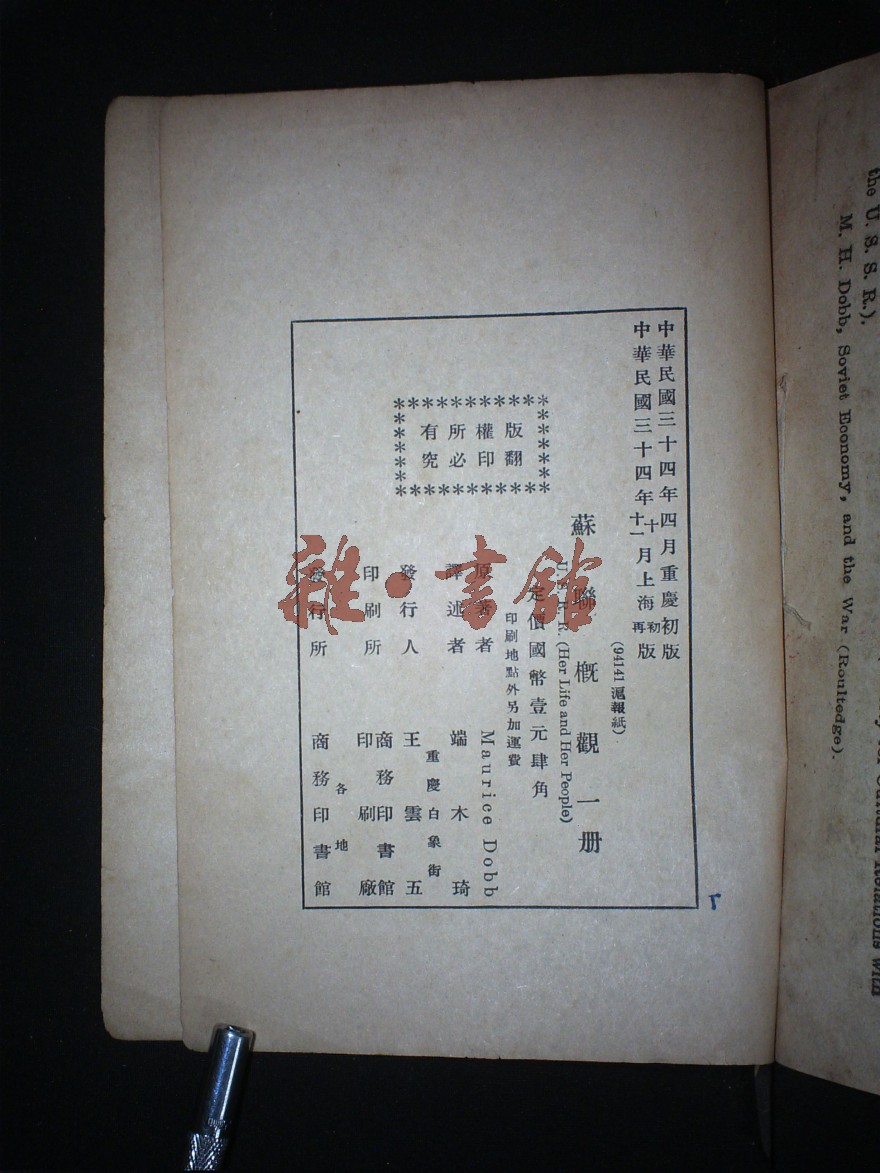 中華民國三十四年四月重慶初版
中華民國三十四年十月上海初版
十一 再
(94141滬報紙)
蘇聯概觀一册
U. S. S. R. (Her Life and Her People)
定價國幣壹元肆角
印刷地點外另加運費
版權所有
翻印必究
原著者 Maurice Dobb
譯述者 端木琦
發行人 王雲五
重慶白象街
印刷所 商務印書館
印刷廠
發行所 商務印書館
各地
雜·書館
the U. S. S. R.).
M. H. Dobb, Soviet Economy, and the War (Roultedge).
for Cultural Relations with